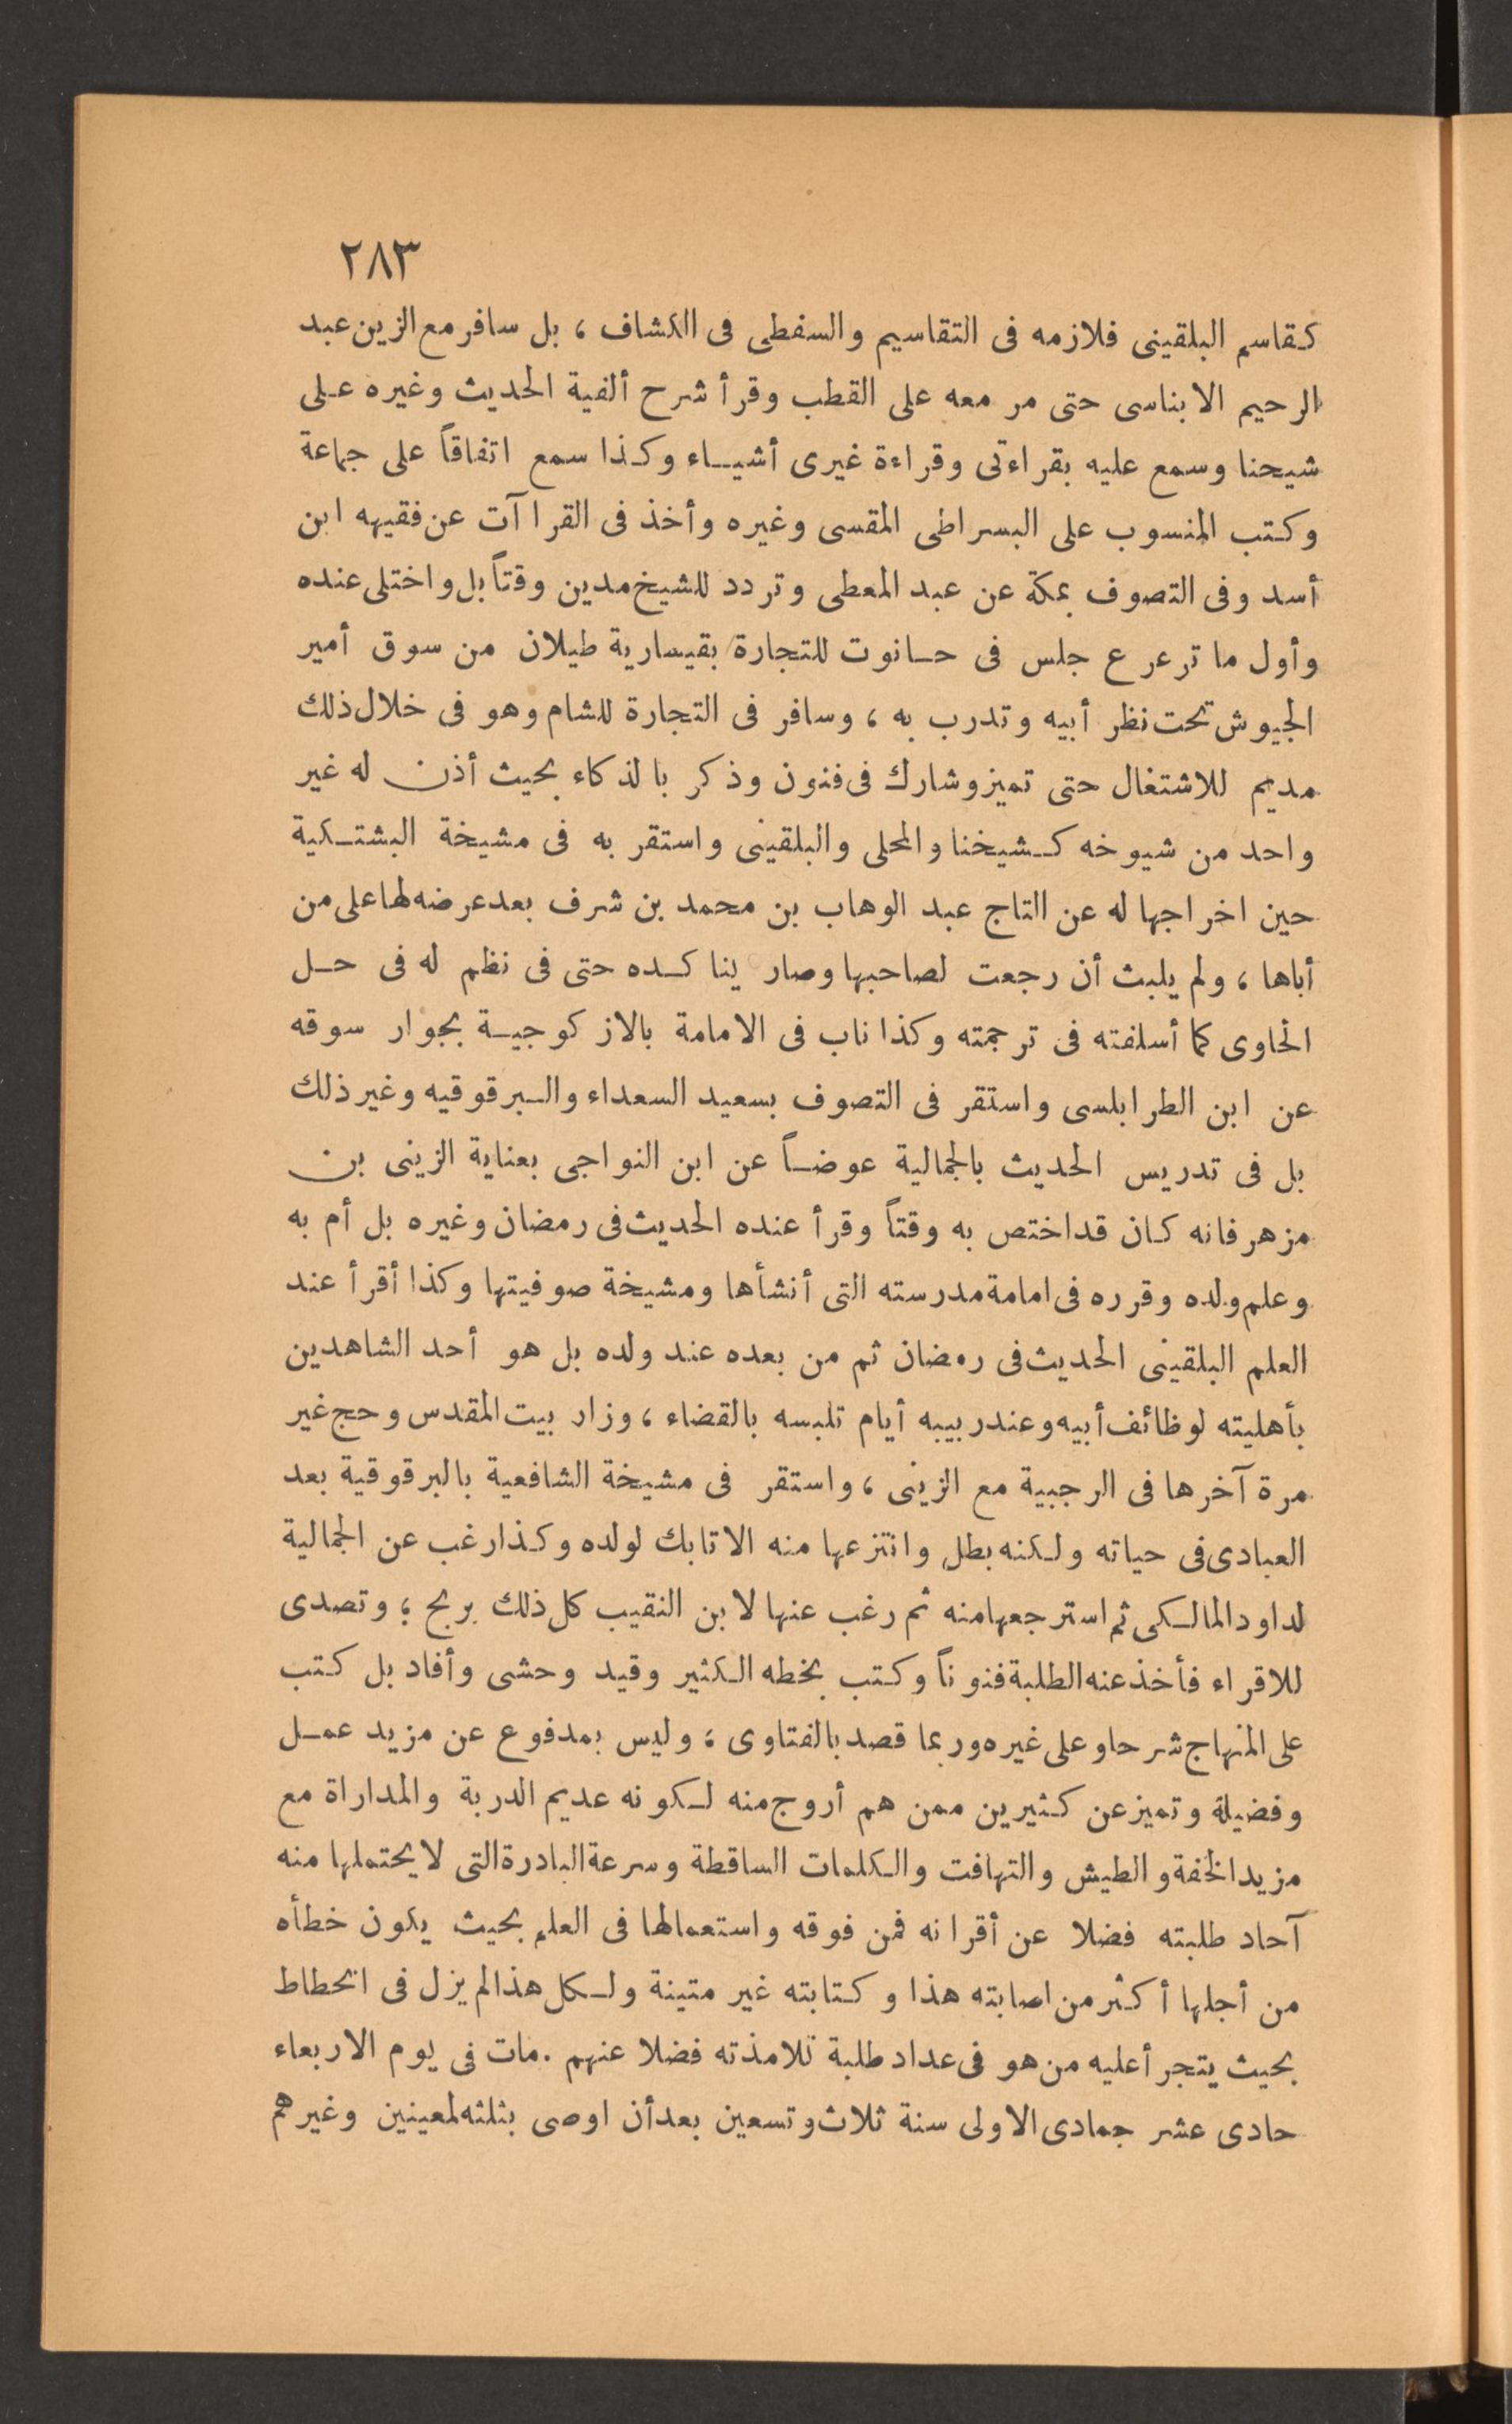 ٢٨٣
كقاسم البلقينى فلازمه فى التقاسيم والسفطى فى الكشاف ، بل سافر مع الزين عبد
الرحيم الابناسى حتى مر معه على القطب وقرأ شرح ألفية الحديث وغيره على
شيحنا وسمع عليه بقراءتى وقراءة غيرى أشياء وكذا سمع اتفاقاً على جماعة
وكتب المنسوب على البسراطى المقسى وغيره وأخذ فى القراآت عن فقيهه ابن
أسد وفى التصوف بمكة عن عبد المعطى وتردد للشيخ مدين وقتاً بل واختلى عنده
وأول ما ترعرع جلس فى حانوت للتجارة بقيسارية طيلان من سوق أمير
الجيوش تحت نظر أبيه وتدرب به ، وسافر فى التجارة للشام وهو فى خلال ذلك
مديم للاشتغال حتى تميز وشارك فى فنون وذكر بالذكاء بحيث أذن له غير
واحد من شيوخه كشيخنا والمحلى والبلقينى واستقر به فى مشيخة البشتكية
حين اخراجها له عن التاج عبد الوهاب بن محمد بن شرف بعد عرضه لها على من
أباها ، ولم يلبث أن رجعت لصاحبها وصار يناكده حتى فى نظم له فى حل
الحاوى كما أسلفته فى ترجمته وكذا ناب فى الامامة بالازكوجية بجوار سوقه
عن ابن الطرابلسى واستقر فى التصوف بسعيد السعداء والبرقوقيه وغير ذلك
بل فى تدريس الحديث بالجمالية عوضاً عن ابن النواجى بعناية الزينى بن
مزهر فانه كان قد اختص به وقتاً وقرأ عنده الحديث فى رمضان وغيره بل أم به
وعلم ولده وقرره فى امامة مدرسته التى أنشأها ومشيخة صوفيتها وكذا أقرأ عند
العلم البلقينى الحديث فى رمضان ثم من بعده عند ولده بل هو أحد الشاهدين
بأهليته لوظائف أبيه وعند ربيبه أيام تلبسه بالقضاء ، وزار بيت المقدس وحج غير
مرة آخرها فى الرجبية مع الزينى ، واستقر فى مشيخة الشافعية بالبرقوقية بعد
العبادى فى حياته ولكنه بطل وانتزعها منه الاتابك لولده وكذا رغب عن الجمالية
لداود المالكى ثم استرجعها منه ثم رغب عنها لابن النقيب كل ذلك بربح ؛ وتصدى
للاقراء فأخذ عنه الطلبة فنوناً وكتب بخطه الكثير وقيد وحشى وأفاد بل كتب
على المنهاج شرحا وعلى غيره وربما قصد بالفتاوى ، وليس بمدفوع عن مزيد عمل
وفضيلة وتميز عن كثيرين ممن هم أروج منه لكونه عديم الدربة والمداراة مع
مزيد الخفة والطيش والتهافت والكلمات الساقطة وسرعة البادرة التى لا يحتملها منه
آحاد طلبته فضلا عن أقرانه فمن فوقه واستعمالها فى العلم بحيث يكون خطأه
من أجلها أكثر من اصابته هذا وكتابته غير متينة ولكل هذا لم يزل فى انحطاط
بحيث يتجرأ عليه من هو فى عداد طلبة تلامذته فضلا عنهم . مات فى يوم الاربعاء
حادى عشر جمادى الاولى سنة ثلاث وتسعين بعد أن اوصى بثلثه لمعينين وغيرهم